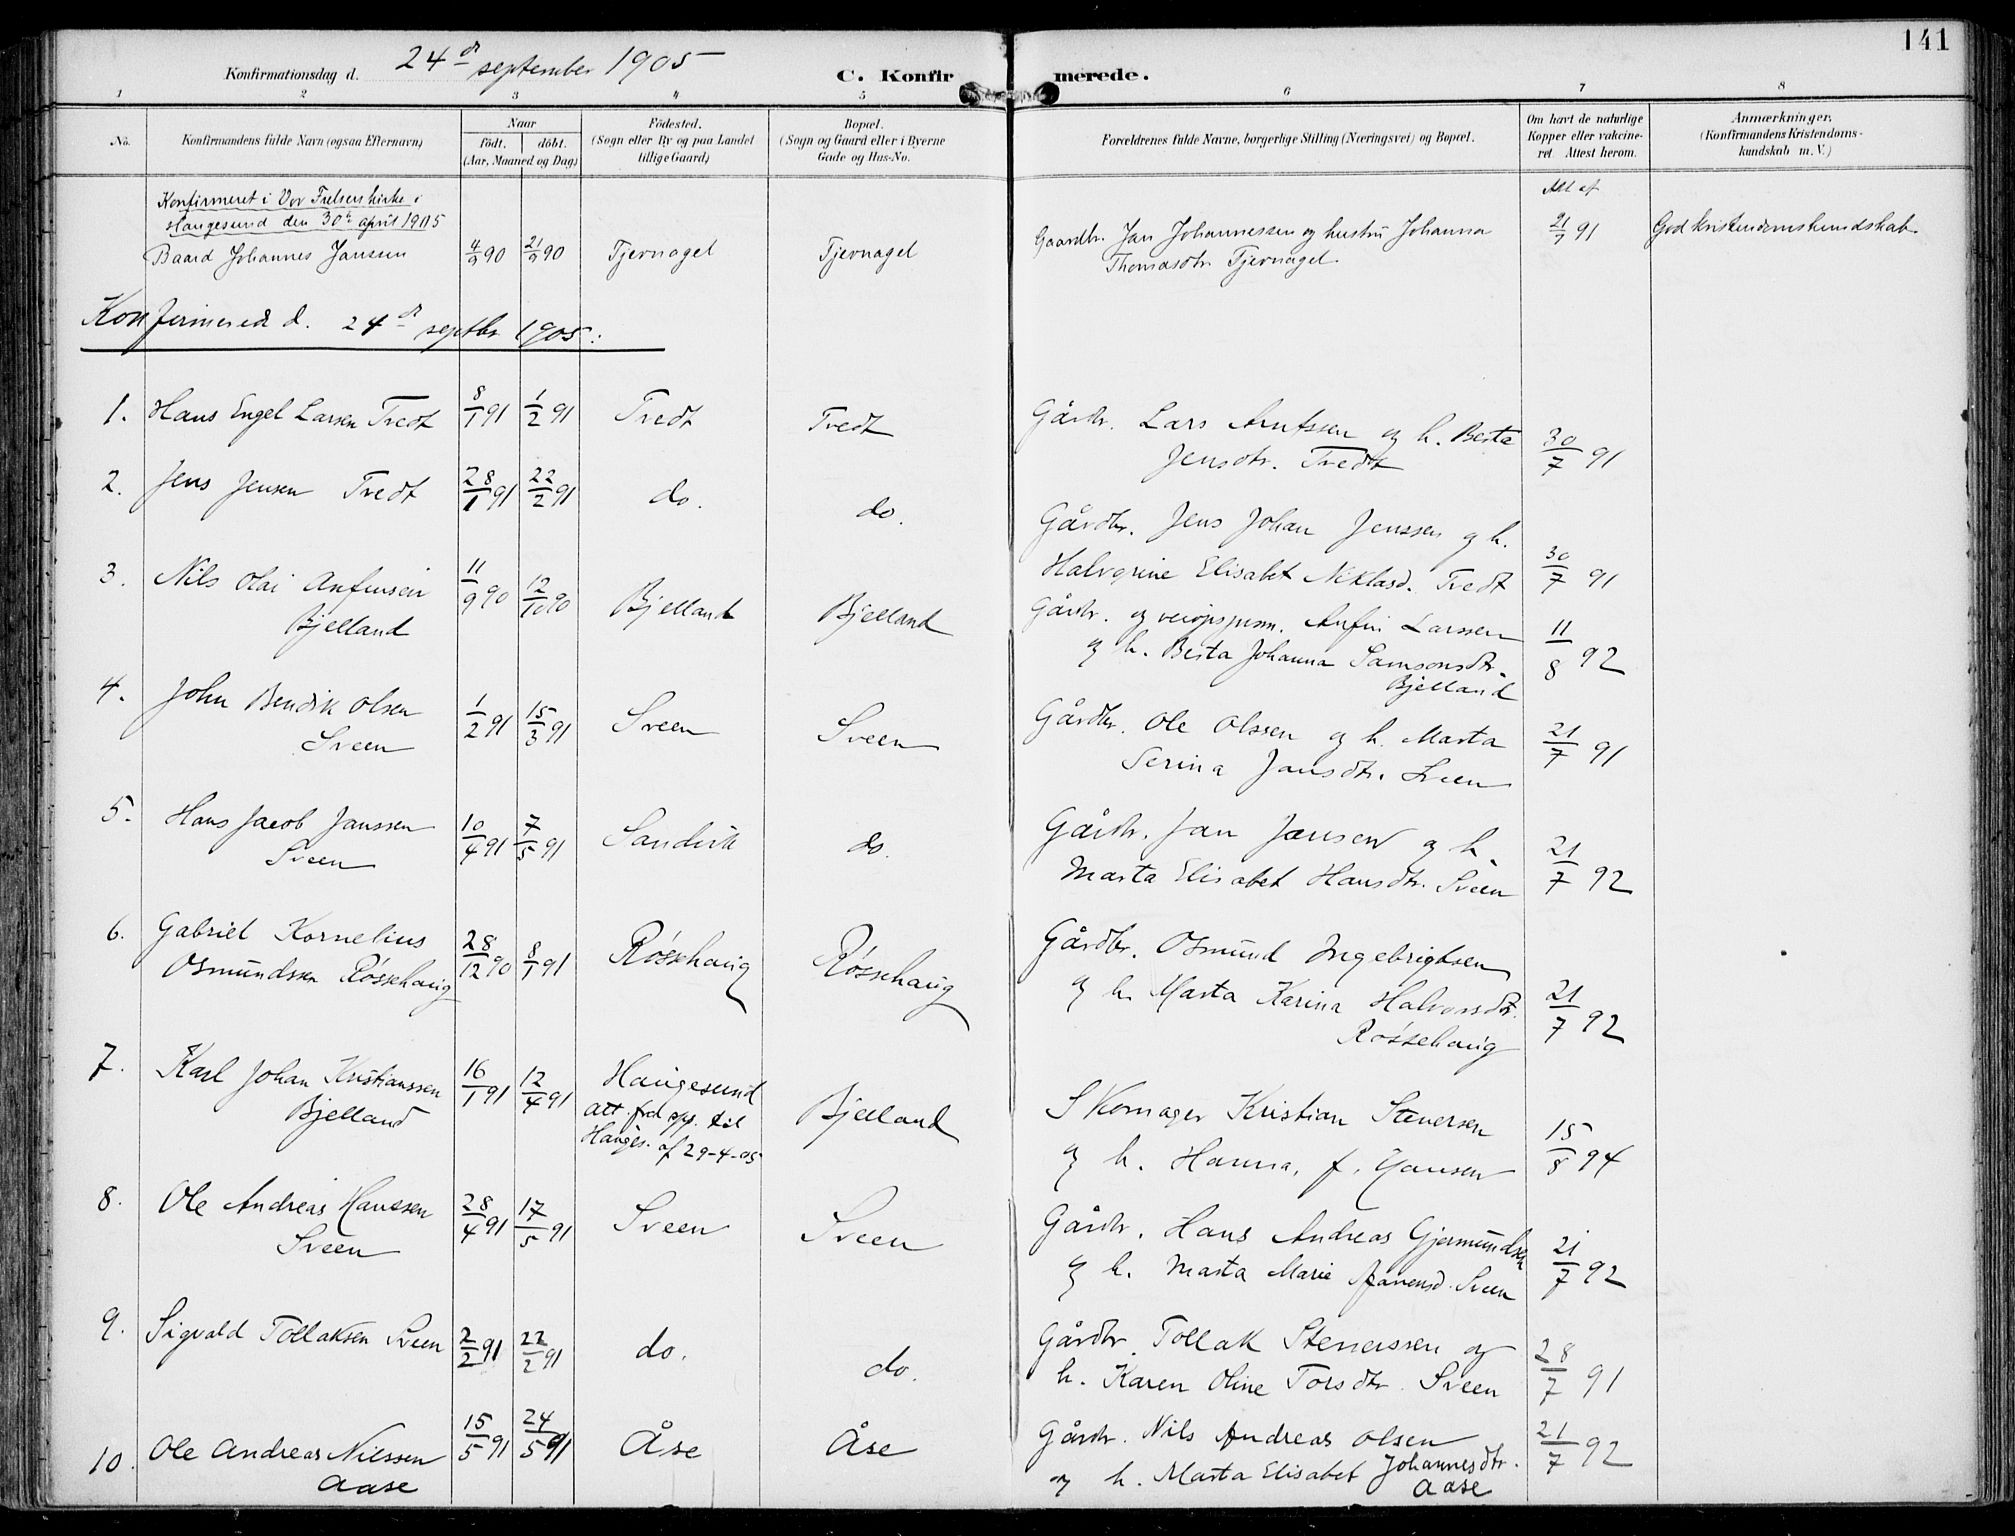 141
Konfirmationsdag d. 24de september 1905
C. Konfirmerede.
1 2 3 4 5 6 7 8
No.
Konfirmandens fulde Navn (ogsaa Efternavn)
Naar
født. døbt.
(Aar, Maaned og Dag)
Fødested.
(Sogn eller By og paa Landet
tillige Gaard)
Bopæl.
(Sogn og Gaard eller i Byerne
Gade og Hus-No.
Forældrenes fulde Navne, borgerlige Stilling (Næringsvei) og Bopæl.
Om havt de naturlige
Kopper eller vakcine-
ret. Attest herom.
Anmærkninger.
(Konfirmandens Kristendoms-
kundskab m. V.)
Konfirmeret i Vor Frelsers kirke i
Haugesund den 30te april 1905
Baard Johannes Janssen 4/9 90 21/9 90 Tjernagel Tjernagel
Gaardbr. Jan Johannessen og hustru Johanna
Thomasdtr. Tjernagel.
Att af
21/7 91
God kristendomskundskab
Konfirmered d. 24de septbr 1905:
1. Hans Engel Larsen Tvedt 8/1 91 1/2 91 Tvedt Tvedt
Gårdbr. Lars Arntssen og h. Berta
Jensdtr. Tvedt
30/7 91
2. Jens Jensen Tvedt 28/1 91 22/2 91 do. do.
Gårdbr. Jens Johan Jenssen og h.
Halvorine Elisabet Niklasd. Tvedt
30/7 91
3. Nils Olai Anfinsen
Bjelland
11/9 90 12/10 90 Bjelland Bjelland
Gårdbr. og Anfin Larssen
og h. Berta Johanna Samsonsdtr.
Bjelland
11/8 92
4. John Bendik Olsen
Sveen
1/2 91 15/3 91 Sveen Sveen
Gårdbr. Ole Olssen og h. Marta
Serina Jansdtr. Sveen
21/7 91
5. Hans Jacob Janssen
Sveen
10/4 91 7/5 91 Sandvik do.
Gårdbr. Jan Jansen og h.
Marta Elisabet Hansdtr. Sveen
21/7 92
6. Gabriel Kornelius
Osmundssen Røssehaug
28/12 90 8/1 91 Røssehaug Røssehaug
Gårdbr. Osmund Ingebrigtsen
og h. Marta Karina Halvorsdtr.
Røssehaug
21/7 92
7. Karl Johan Kristianssen
Bjelland
16/1 91 12/4 91 Haugesund
Att. fra spr. til
Hauges. af 29-4-05
Bjelland
Skomager Kristian Stenersen
og h. Hanna, f. Hansen
15/8 94
8. Ole Andreas Hanssen
Sveen
28/4 91 17/5 91 Sveen Sveen
Gårdbr. Hans Andreas Gjermundsen
og h. Marta Marie Sveen
21/7 92
9. Sigvald Tollaksen Sveen 2/2 91 22/2 91 do. do.
Gårdbr. Tollak Stenerssen og
h. Karen Oline Torsdtr. Sveen
28/7 91
10. Ole Andreas Nilssen
Aase
15/5 91 24/5 91 Åse Åse
Gårdbr. Nils Andreas Olsen
og h. Marta Elisabet Johannesdtr.
Aase
21/7 92